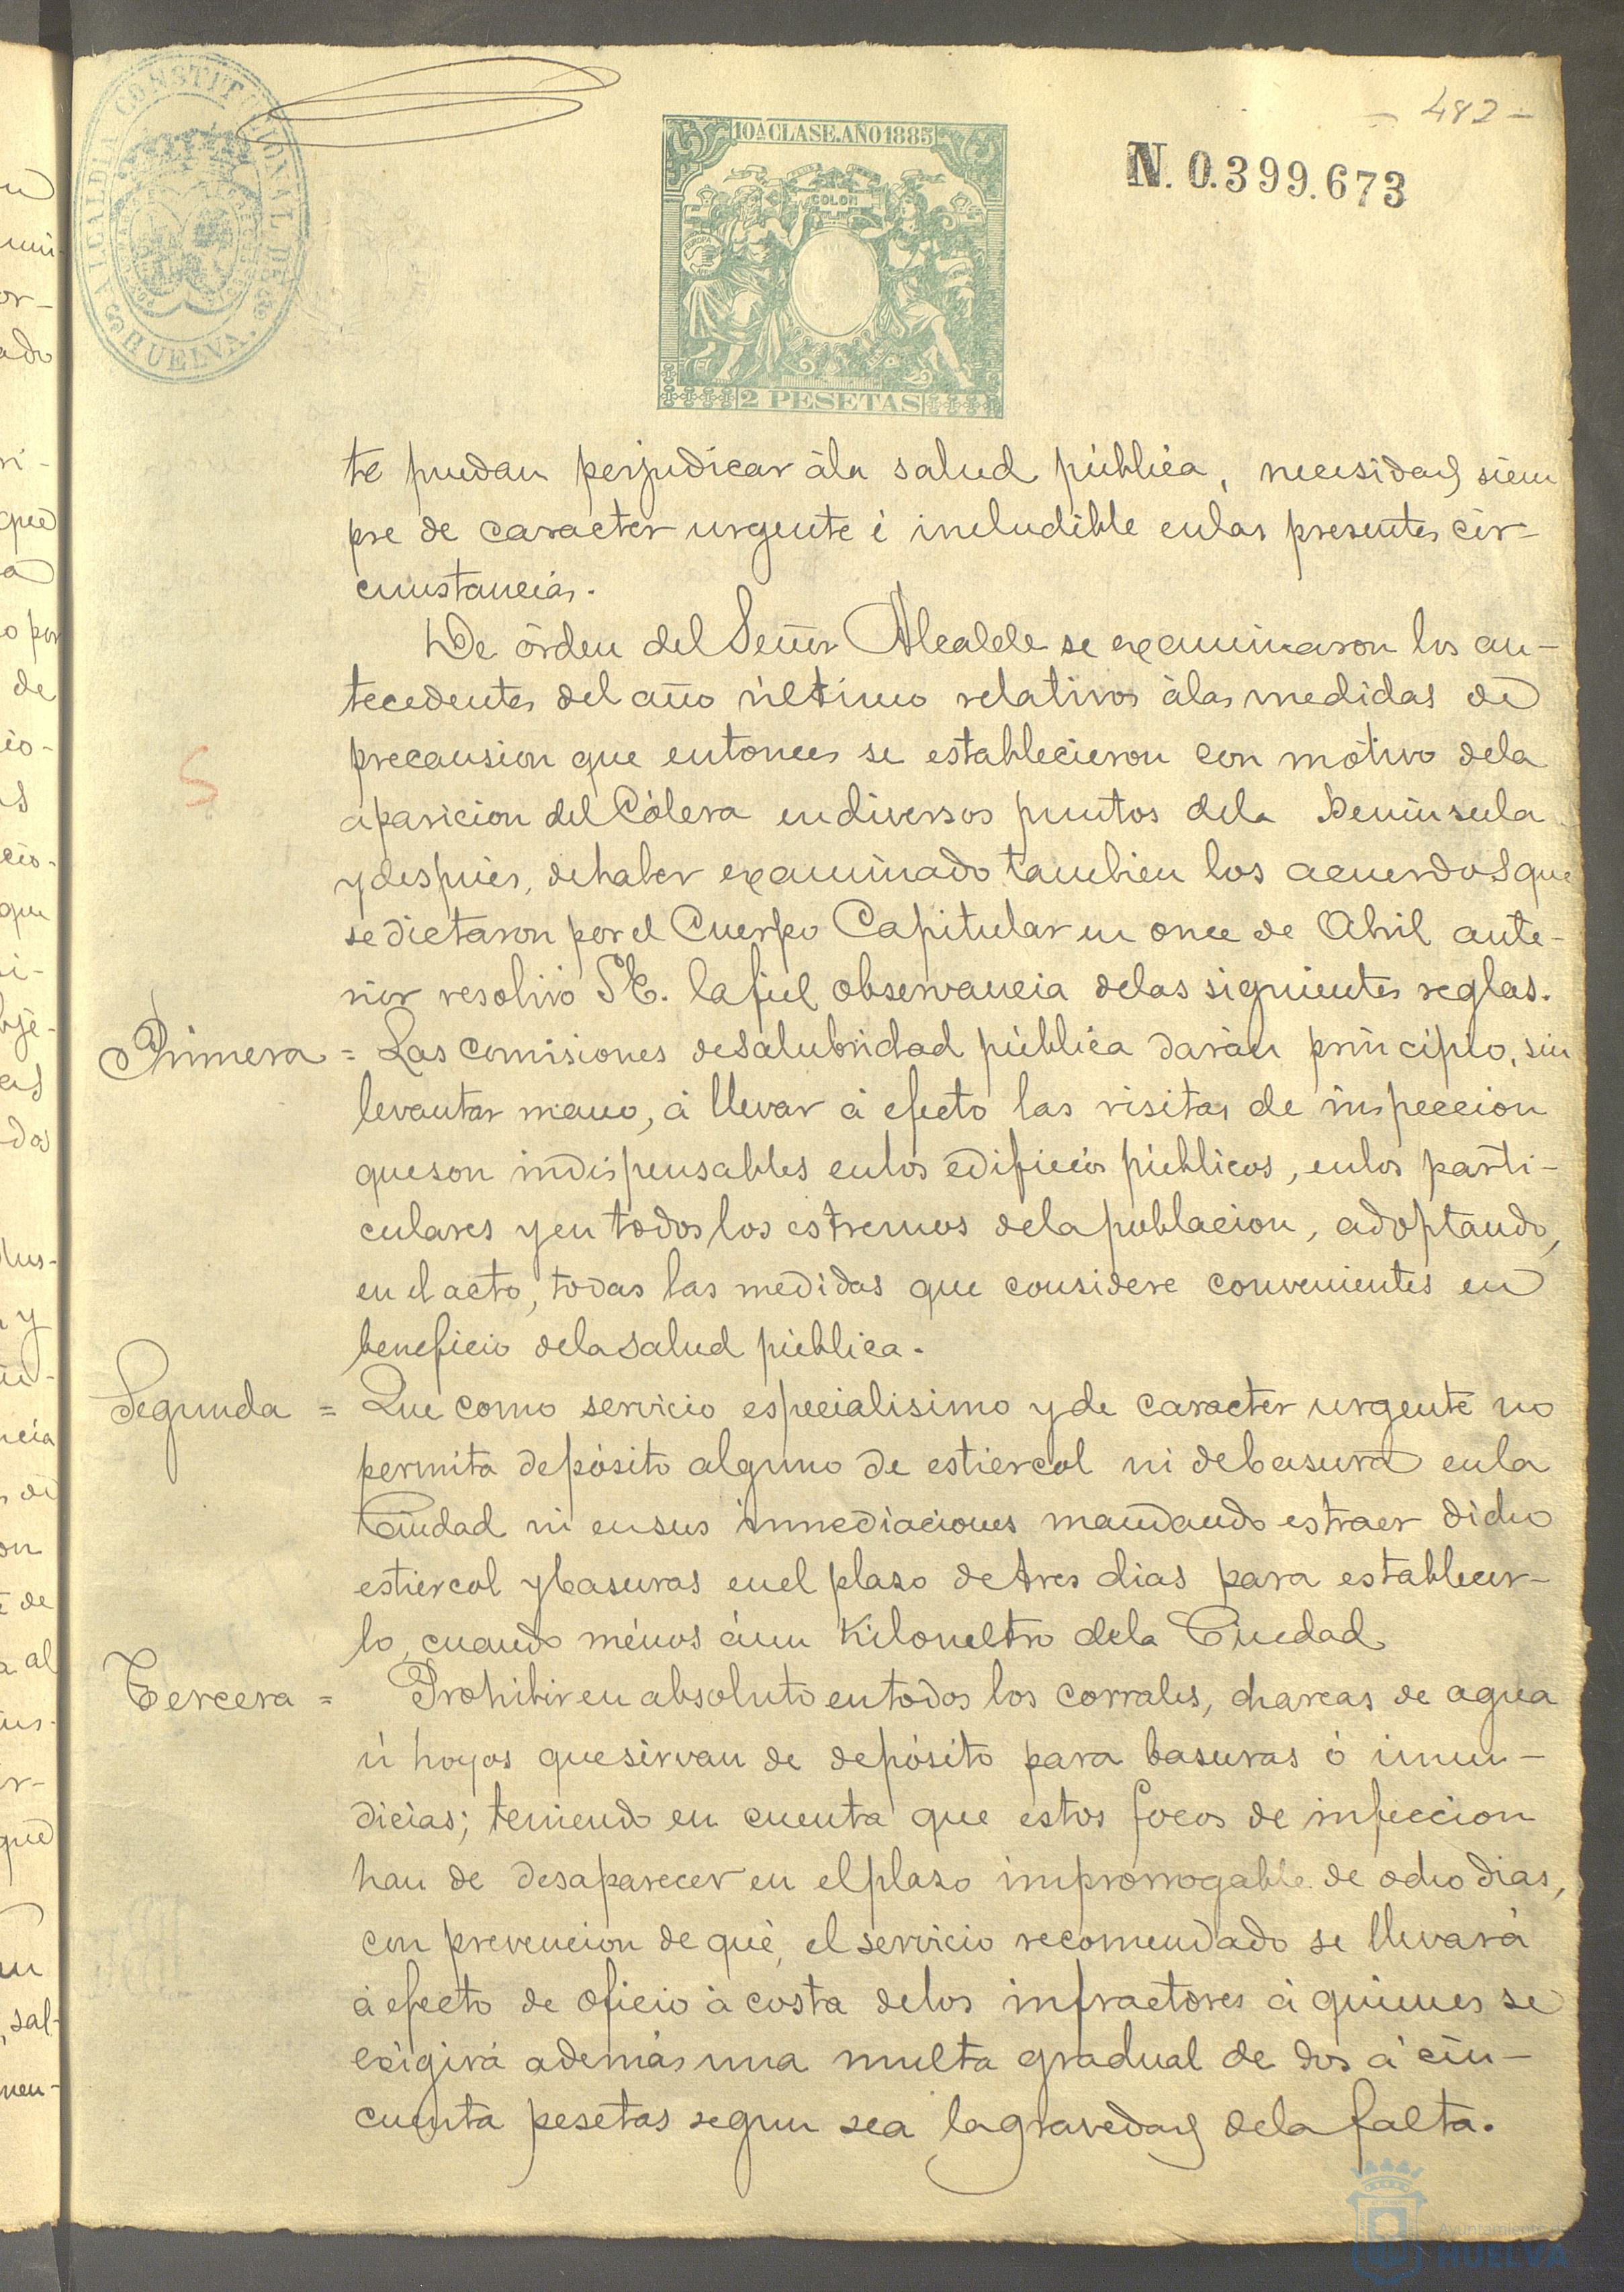 - 482 -
ALCALDIA CONSTITUCIONAL DE HUELVA.
10ª CLASE. AÑO 1885
N. 0.399.673
COLON
EUROPA
2 PESETAS
te puedan perjudicar àla salud pública, necesidad siem
pre de caracter urgente é includible enlas presentes cir-
cunstancias.
De órden del Señor Alcalde se examinaron los an-
tecedentes del año último relativos àlas medidas de
precausion que entonces se establecieron con motivo dela
aparicion del Cólera endiversos puntos dela Peninsula
ydespués, dehaber examinado tambien los acuerdos que
se dictaron por el Cuerpo Capitular en once de Abril ante-
rior resolvió S.E. la fiel observancia delas siguientes reglas.
Primera = Las comisiones desalubridad pública daràn principio, sin
levantar mano, à llevar à efecto las visitas de inspeccion
queson indispensables enlos edificios públicos, enlos parti-
culares y en todos los estremos dela poblacion, adoptando,
en el acto, todas las medidas que considere convenientes en
beneficio dela salud pública.
Segunda = Que como servicio especialisimo y de caracter urgente no
permita depósito alguno de estiercol ni debasura enla
Ciudad ni ensus inmediaciones mandando estraer dicho
estiercol ybasuras enel plazo detres dias para establecer-
lo, cuando ménos áun Kilometro dela Ciudad
Tercera = Prohibir en absoluto entodos los corrales, charcas de agua
ú hoyos quesirvan de depósito para basuras ó inmun-
dicias; teniendo en cuenta que estos focos de infeccion
han de desaparecer en el plazo improrrogable de ocho dias,
con prevencion de que, el servicio recomendado se llevará
à efecto de oficio à costa delos infractores à quienes se
exigirá además una multa gradual de dos á cin-
cuenta pesetas segun sea la gravedad dela falta.
S
Ayuntamiento
HUELVA